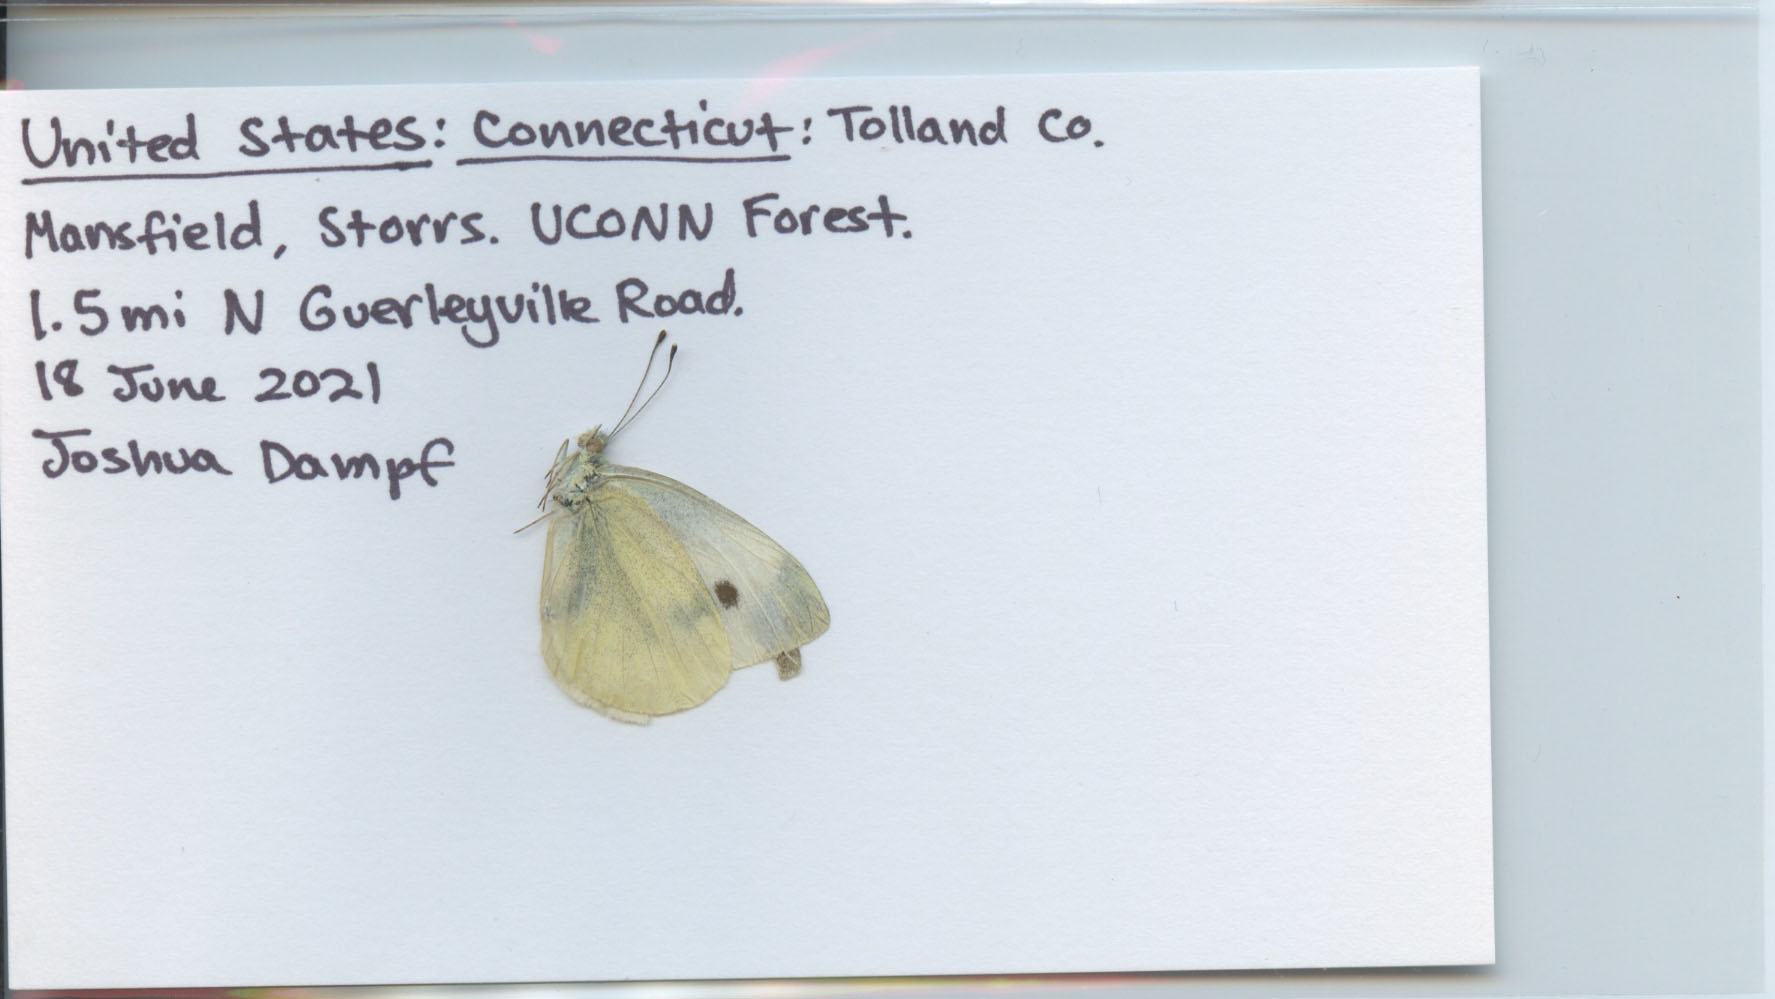 United States: Connecticut: Tolland Co.
Mansfield, Storrs. UCONN Forest.
1.5mi N Guerleyville Road.
18 June 2021
Joshua Dampf